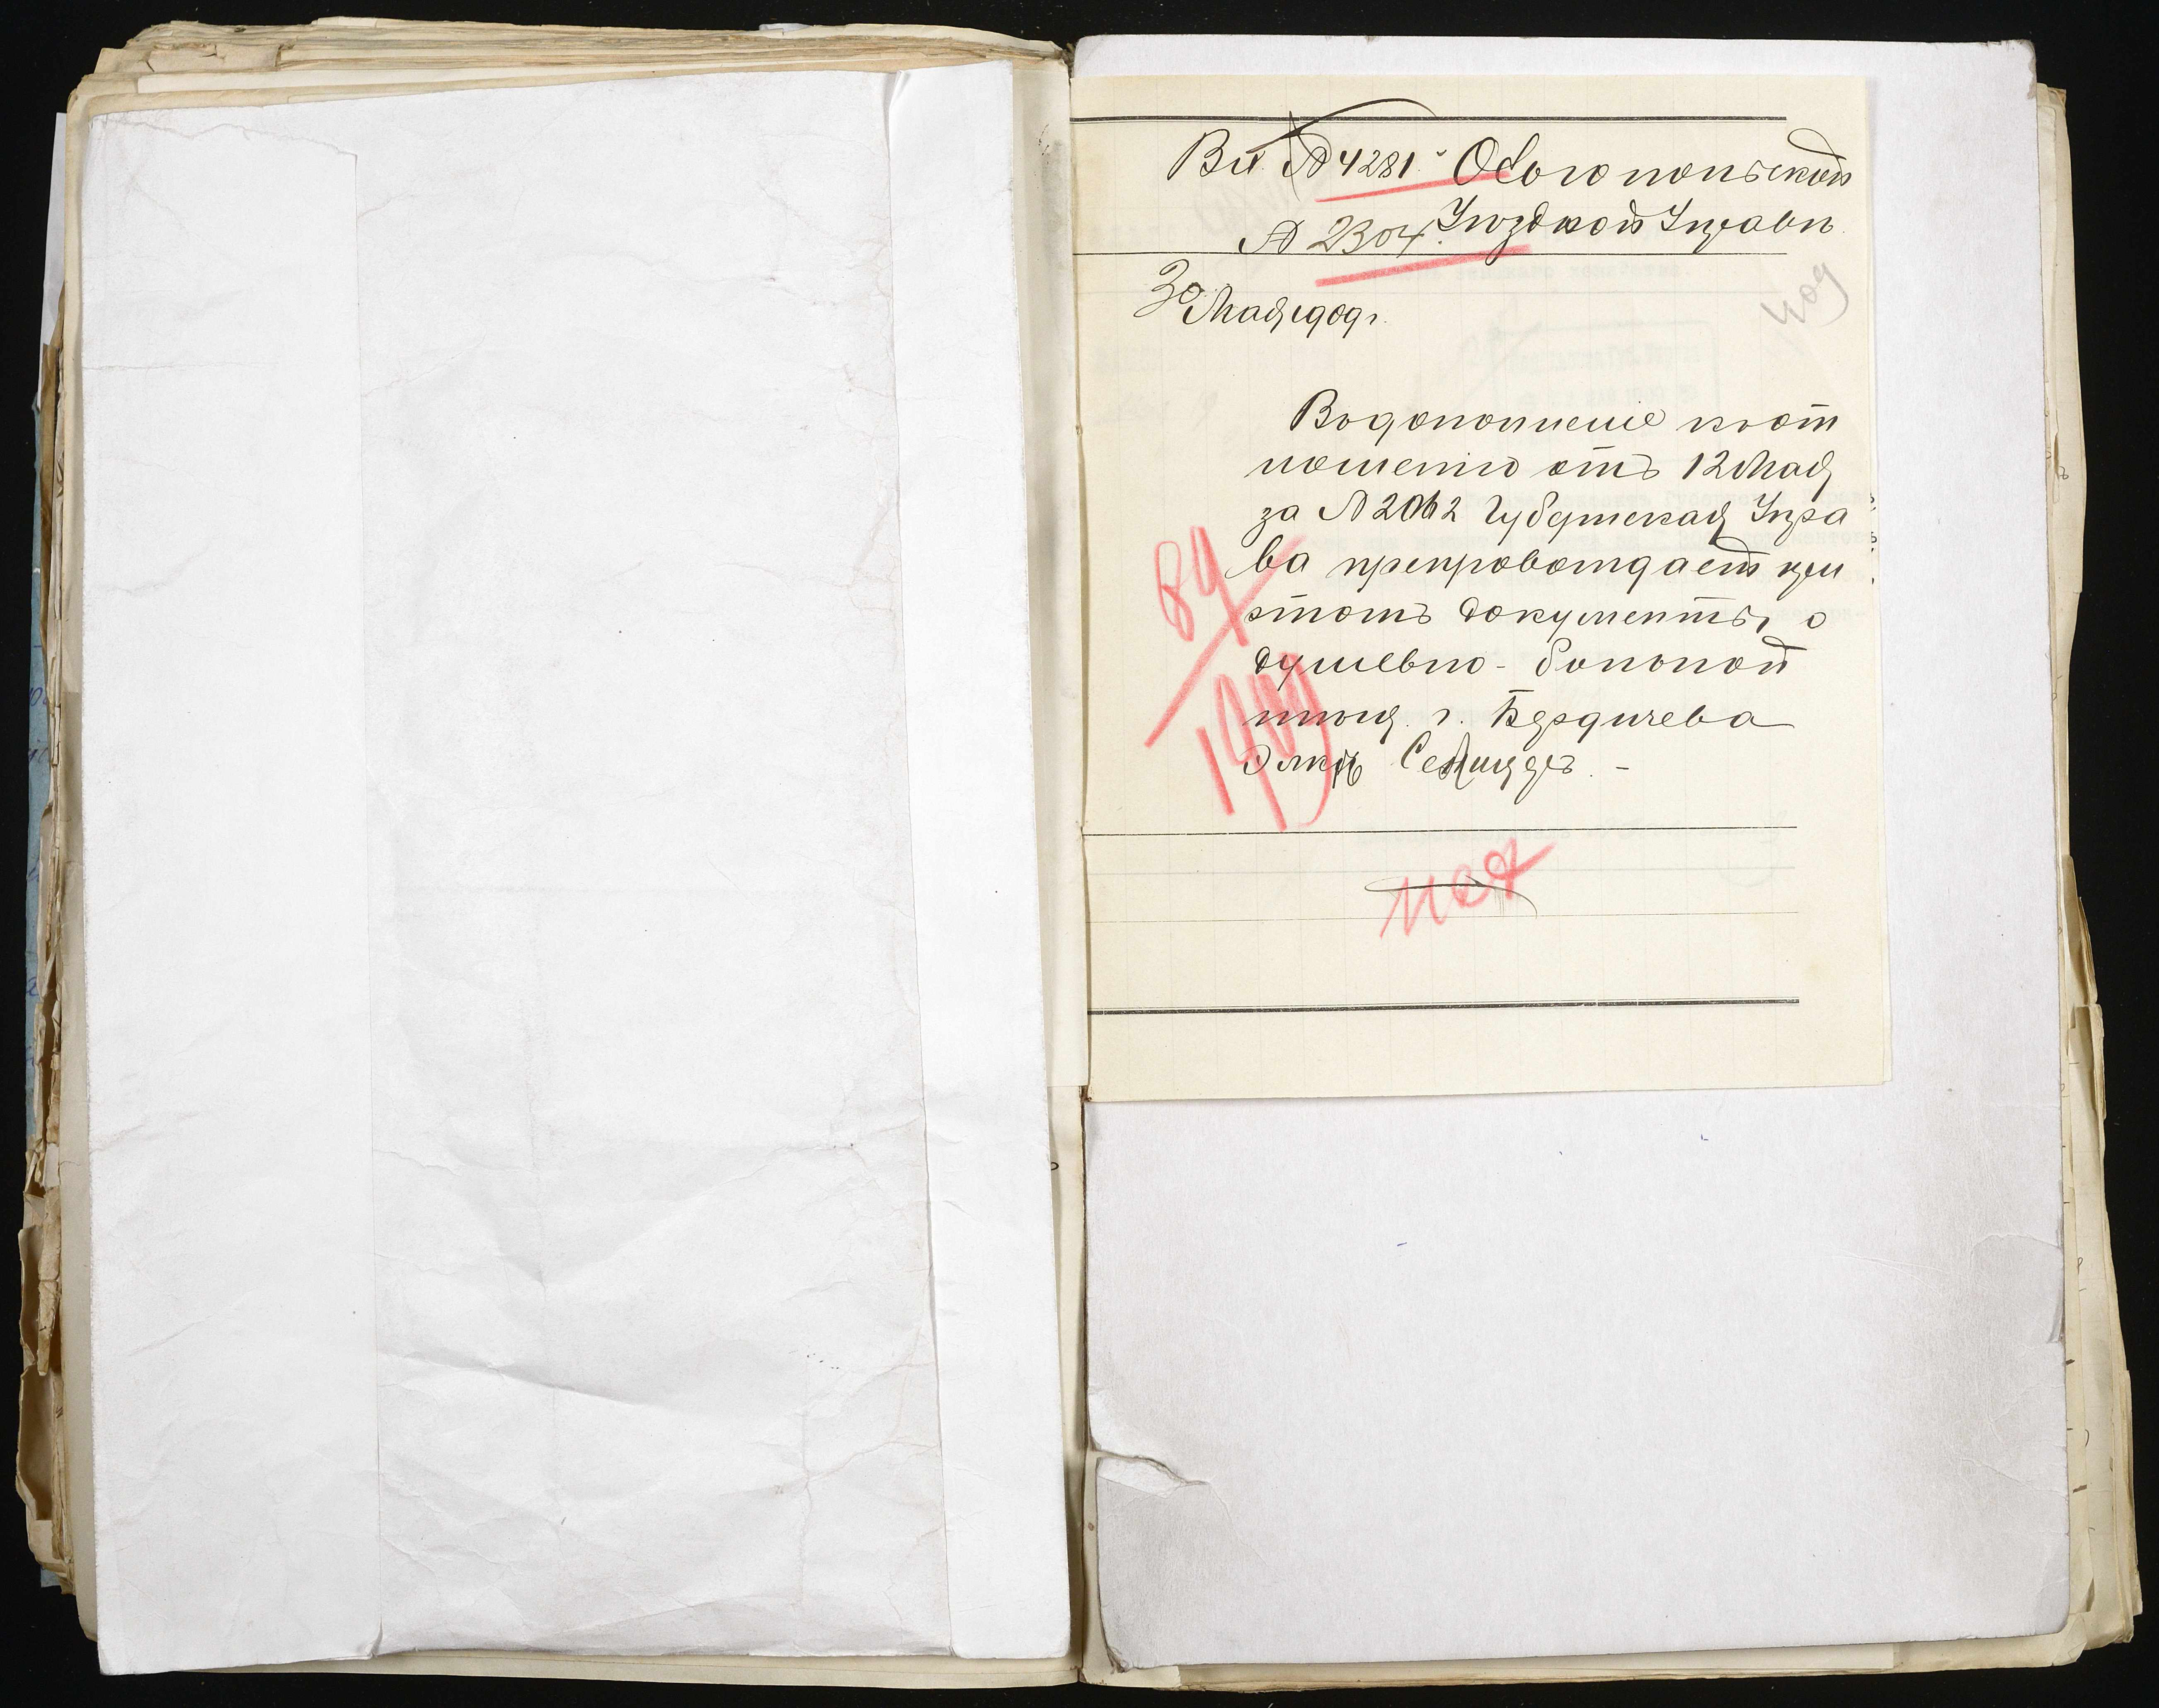 Вх. № 4281. Обоюпольской
№ 2304. Уѣздной Управѣ.
30 Мая 1909 г.
409
Въ дополненіе къ от
ношенію отъ 12 Мая
за № 2062 Губернская Упра
ва препровождаетъ при
этомъ документы о
душевно-больной
мѣщ. г. Бердичева
Элькѣ
89
1909